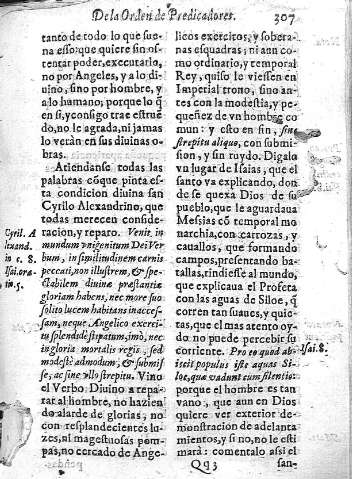 De la Orden de Predicadores. 307
tanto de todo lo que sue-
na esso: que quiere sin os-
tentar poder, executarlo,
no por Angeles, y a lo di-
uino, sino por hombre, y
a lo humano; porque lo q̃
en si, y consigo trae estruẽ
do, no le agrada, ni jamas
lo veràn en sus diuinas o-
bras.
Atiendanse todas las
palabras cõ que pinta es-
ta condicion diuina san
Cyrilo Alexandrino, que
todas merecen conside-
racion, y reparo. Venit in
mundum vnigenitum Dei Ver
bum, in similitudinem carnis
peccati, non illustrem, & spe-
ctabilem diuinæ præstantiæ
gloriam habens, nec more suo
solito lucem habitans inacces-
sam, neque Angelico exerci-
tu splendide stipatum, imò, nec
in gloria mortalis regis, sed
modestè admodum, & submis-
se, ac sine vllo strepitu. Vino
el Verbo Diuino a repa-
rar al hombre, no hazien
do alarde de glorias, no
con resplandecientes lu-
zes, ni magestuosas pom-
pas, no cercado de Ange-
Cyril. A
lexand.
in c. 8.
Isai. ora-
tin. 5.
licos exercitos, y sobera-
nas esquadras; ni aun co-
mo ordinario, y temporal
Rey, quiso le viessen en
Imperial trono, sino an-
tes con la modestia, y pe-
queñez de vn hombre co
mun: y esto en fin, sine
strepitu aliquo, con submis-
sion, y sin ruydo. Digalo
vn lugar de Isaias, que el
santo va explicando, don
de se quexa Dios de su
pueblo, que le aguardaua
Messias cõ temporal mo
narchia, con carrozas, y
cauallos, que formando
campos, presentando ba-
tallas, rindiesse al mundo,
que explicaua el Profeta
con las aguas de Siloe, q̃
corren tan suaues, y quie-
tas, que el mas atento oy-
do no puede percibir su
corriente. Pro eo quod ab-
iecit populus iste aquas Si-
loe, quæ vadunt cum silentio:
porque el hombre es tan
vano, que aun en Dios
quiere ver exterior de-
monstracion de adelanta
mientos, y si no, no le esti
marà: comentalo assi el
Isai. 8.
Qq3 san-